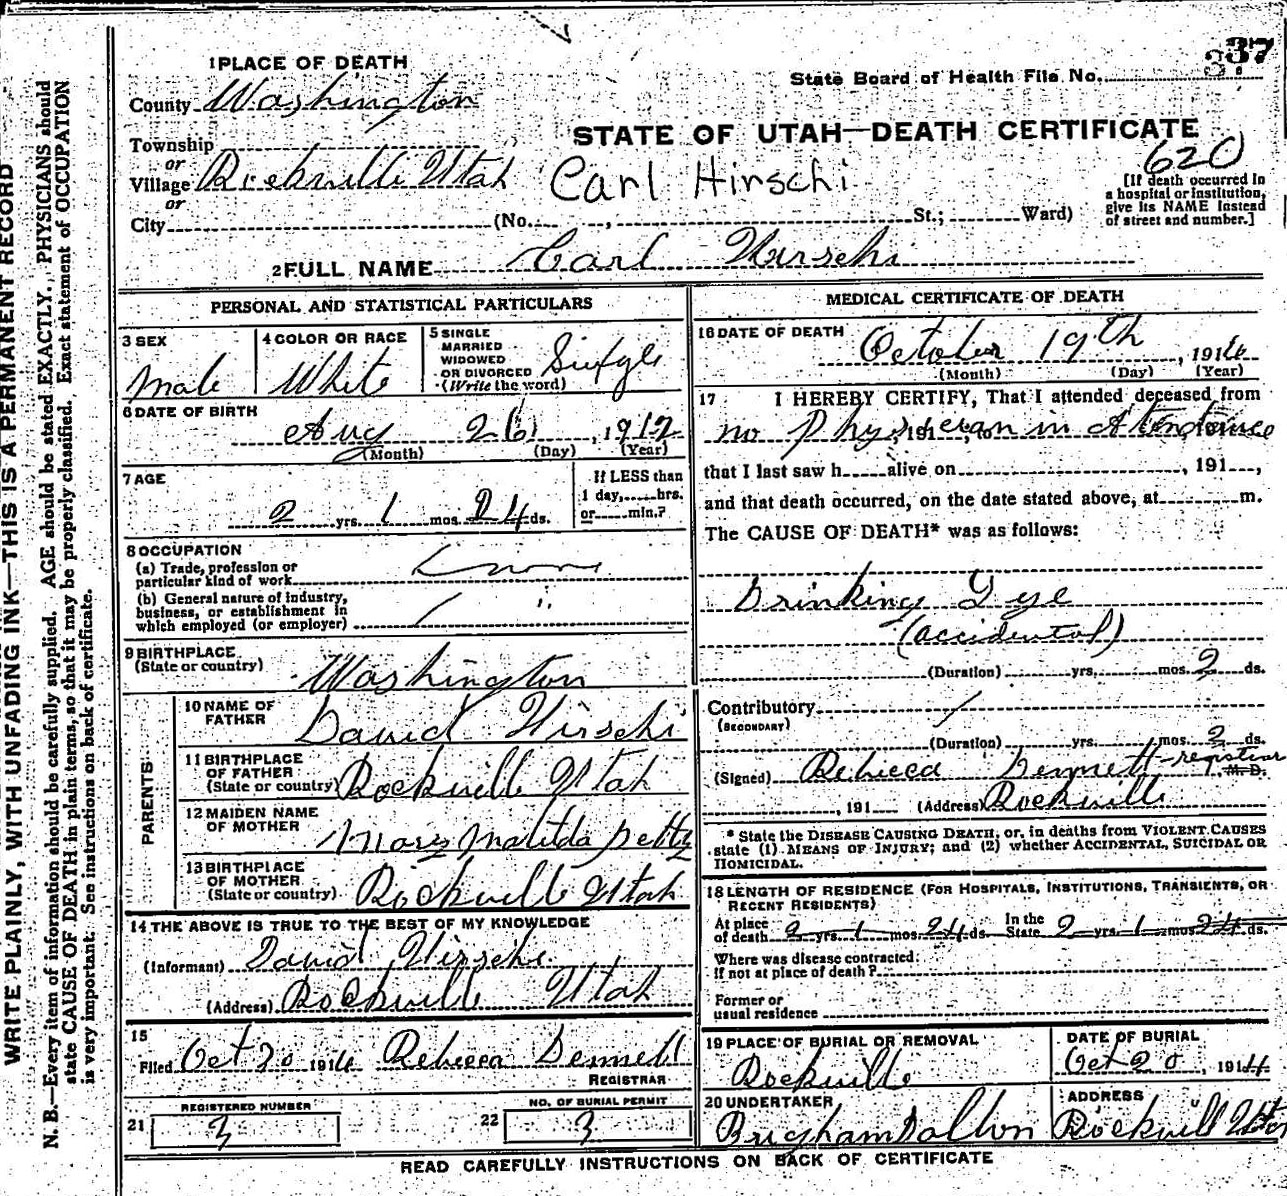 37
1 PLACE OF DEATH
State Board of Health File No.
County Washington
STATE OF UTAH—DEATH CERTIFICATE
620
Township
or
Village Rockville Utah Carl Hirschi
or
City (No. , St.; Ward)
[If death occurred in
a hospital or institution,
give its NAME instead
of street and number.]
2 FULL NAME Carl Hirschi
PERSONAL AND STATISTICAL PARTICULARS
3 SEX
Male
4 COLOR OR RACE
White
5 SINGLE
MARRIED
WIDOWED
OR DIVORCED
(Write the word)
Single
6 DATE OF BIRTH
Aug 26, 1912
(Month) (Day) (Year)
7 AGE
2 yrs. 1 mos. 24 ds.
If LESS than
1 day, hrs.
or min.?
8 OCCUPATION
(a) Trade, profession or
particular kind of work
none
(b) General nature of industry,
business, or establishment in
which employed (or employer) "
9 BIRTHPLACE
(State or country) Washington
PARENTS
10 NAME OF
FATHER David Hirschi
11 BIRTHPLACE
OF FATHER
(State or country) Rockville Utah
12 MAIDEN NAME
OF MOTHER Mary Matilda Petty
13 BIRTHPLACE
OF MOTHER
(State or country) Rockville Utah
14 THE ABOVE IS TRUE TO THE BEST OF MY KNOWLEDGE
(Informant) David Hirschi
(Address) Rockville Utah
15
Filed Oct 20 1914 Rebecca Dennett
REGISTRAR
21 REGISTERED NUMBER
3
22 NO. OF BURIAL PERMIT
3
MEDICAL CERTIFICATE OF DEATH
16 DATE OF DEATH
October 19th, 1914
(Month) (Day) (Year)
17 I HEREBY CERTIFY, That I attended deceased from
no Physician in Attendance
, 191 , to , 191
that I last saw h alive on , 191 ,
and that death occurred, on the date stated above, at m.
The CAUSE OF DEATH* was as follows:
Drinking Lye
(accidental)
(Duration) yrs. mos. 2 ds.
Contributory
(SECONDARY)
(Duration) yrs. mos. 2 ds.
(Signed) Rebecca Dennett - registrar M.D.
, 191 (Address) Rockville
* State the DISEASE CAUSING DEATH, or, in deaths from VIOLENT CAUSES
state (1) MEANS OF INJURY; and (2) whether ACCIDENTAL, SUICIDAL OR
HOMICIDAL.
18 LENGTH OF RESIDENCE (FOR HOSPITALS, INSTITUTIONS, TRANSIENTS, OR
RECENT RESIDENTS)
At place
of death 2 yrs. 1 mos. 24 ds.
In the
State 2 yrs. 1 mos. 24 ds.
Where was disease contracted
if not at place of death?
Former or
usual residence
19 PLACE OF BURIAL OR REMOVAL
Rockville
DATE OF BURIAL
Oct 20, 1914
20 UNDERTAKER
Brigham Dalton
ADDRESS
Rockvill Utah
READ CAREFULLY INSTRUCTIONS ON BACK OF CERTIFICATE
WRITE PLAINLY, WITH UNFADING INK—THIS IS A PERMANENT RECORD
N. B.—Every item of information should be carefully supplied. AGE should be stated EXACTLY. PHYSICIANS should
state CAUSE OF DEATH in plain terms, so that it may be properly classified. Exact statement of OCCUPATION
is very important. See instructions on back of certificate.